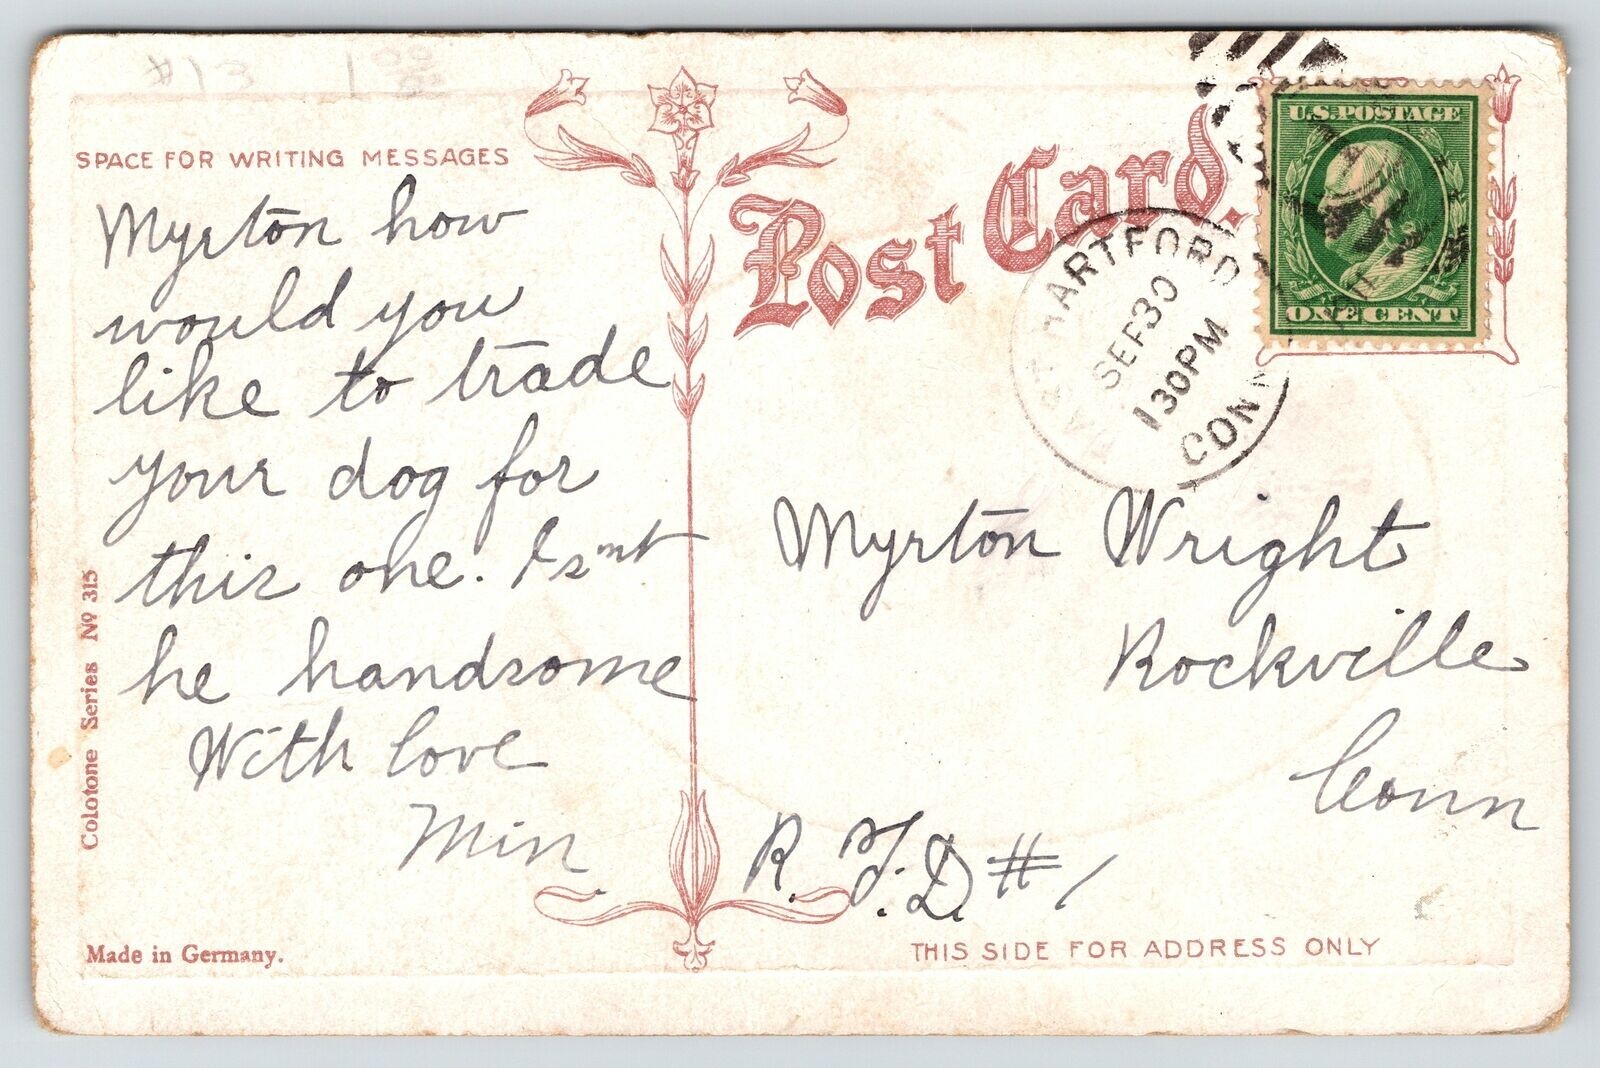 #13 1 00
SPACE FOR WRITING MESSAGES
Myrton how
would you
like to trade
your dog for
this one. Isnt
he handsome
With love
Min
Colotone Series No 315
Made in Germany.
Post Card.
U.S. POSTAGE
ONE CENT
EAST HARTFORD
SEP 30
1 30 PM
CONN
Myrton Wright
Rockville
Conn
R. F. D. # 1
THIS SIDE FOR ADDRESS ONLY